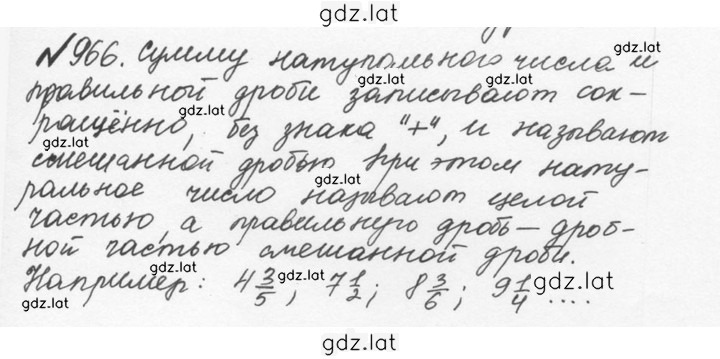 gdz.lat
№966. Сумму натурального числа и
gdz.lat gdz.lat
правильной дроби записывают сок-
gdz.lat
ращённо, без знака "+", и называют
gdz.lat
смешанной дробью При этом нату-
gdz.lat
ральное число называют целой
частью, а правильную дробь – дроб-
gdz.lat gdz.lat
ной частью смешанной дроби.
gdz.lat gdz.lat
Например: 4 3/5; 7 1/2; 8 3/6; 9 1/4 ....
gdz.lat gdz.lat
gdz.lat